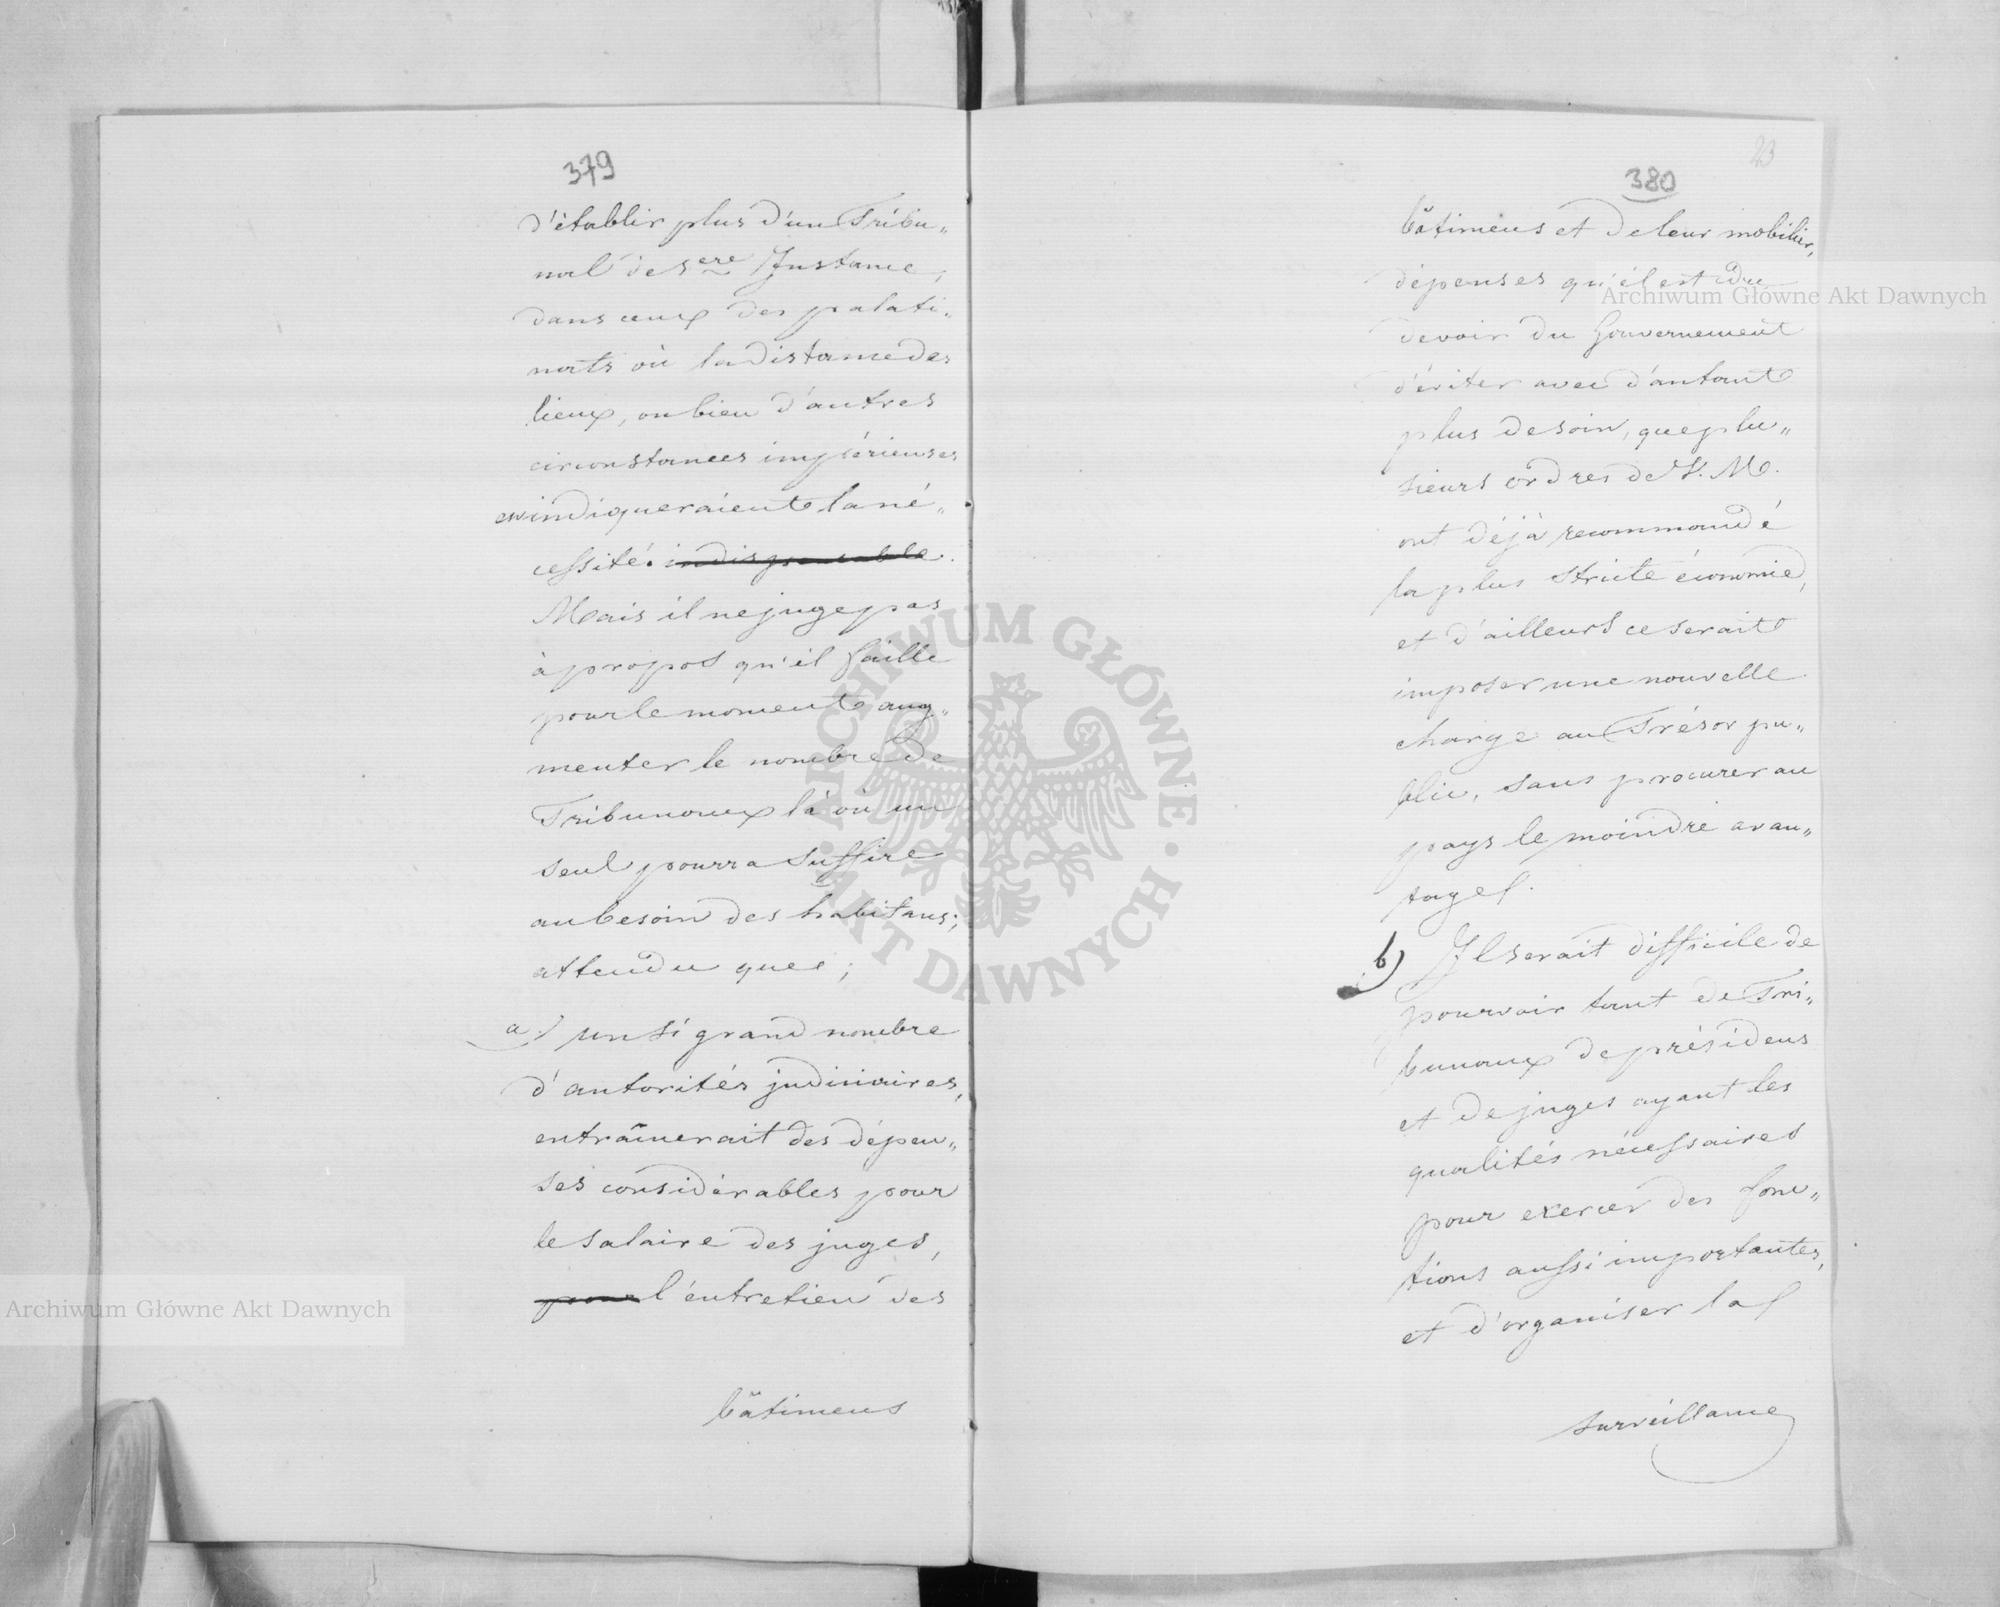 379
d'établir plus d'un Tribu„
nal de 1ère Instance,
dans ceux des palati„
nats où la distance des
lieux, ou bien d'autres
circonstances impérieuses
en indiqueraient la né„
cessité. indispensable.
Mais il ne juge pas
à propos qu'il faille
pour le moment aug„
menter le nombre de
Tribunaux là où un
seul pourra suffire
au besoin des habitans;
attendu que;
a.) un si grand nombre
d'autorités judiciaires,
entraînerait des dépen„
ses considérables pour
le salaire des juges,
pour l'entretien des
bâtimens
23
380
bâtimens et de leur mobilier,
dépenses qu'il est du
devoir du Gouvernement
d'éviter avec d'autant
plus de soin, que plu„
sieurs ordres de S. M.
ont déjà recommandé
la plus stricte économie,
et d'ailleurs ce serait
imposer une nouvelle
charge au Trésor pu„
blic, sans procurer au
pays le moindre avan„
tage.
b) Il serait difficile de
pourvoir tant de Tri„
bunaux de présidens
et de juges ayant les
qualités nécessaires
pour exercer des fonc„
tions aussi importantes,
et d'organiser la
surveillance
Archiwum Główne Akt Dawnych
Archiwum Główne Akt Dawnych
ARCHIWUM GŁÓWNE · AKT DAWNYCH ·